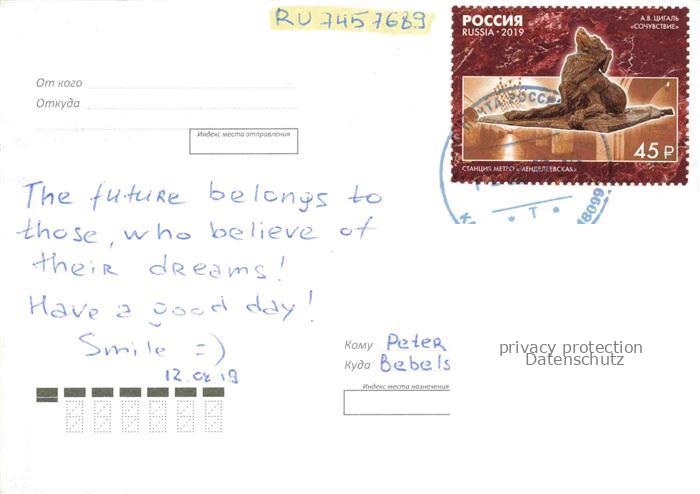 RU 7457689
РОССИЯ
RUSSIA • 2019
А.В. ЦИГАЛЬ
«СОЧУВСТВИЕ»
45 ₽
СТАНЦИЯ МЕТРО «МЕНДЕЛЕЕВСКАЯ»
От кого
Откуда
Индекс места отправления
* Т *
The future belongs to
those, who believe of
their dreams!
Have a good day!
Smile =)
Кому Peter
Куда Bebels
Индекс места назначения
privacy protection
Datenschutz